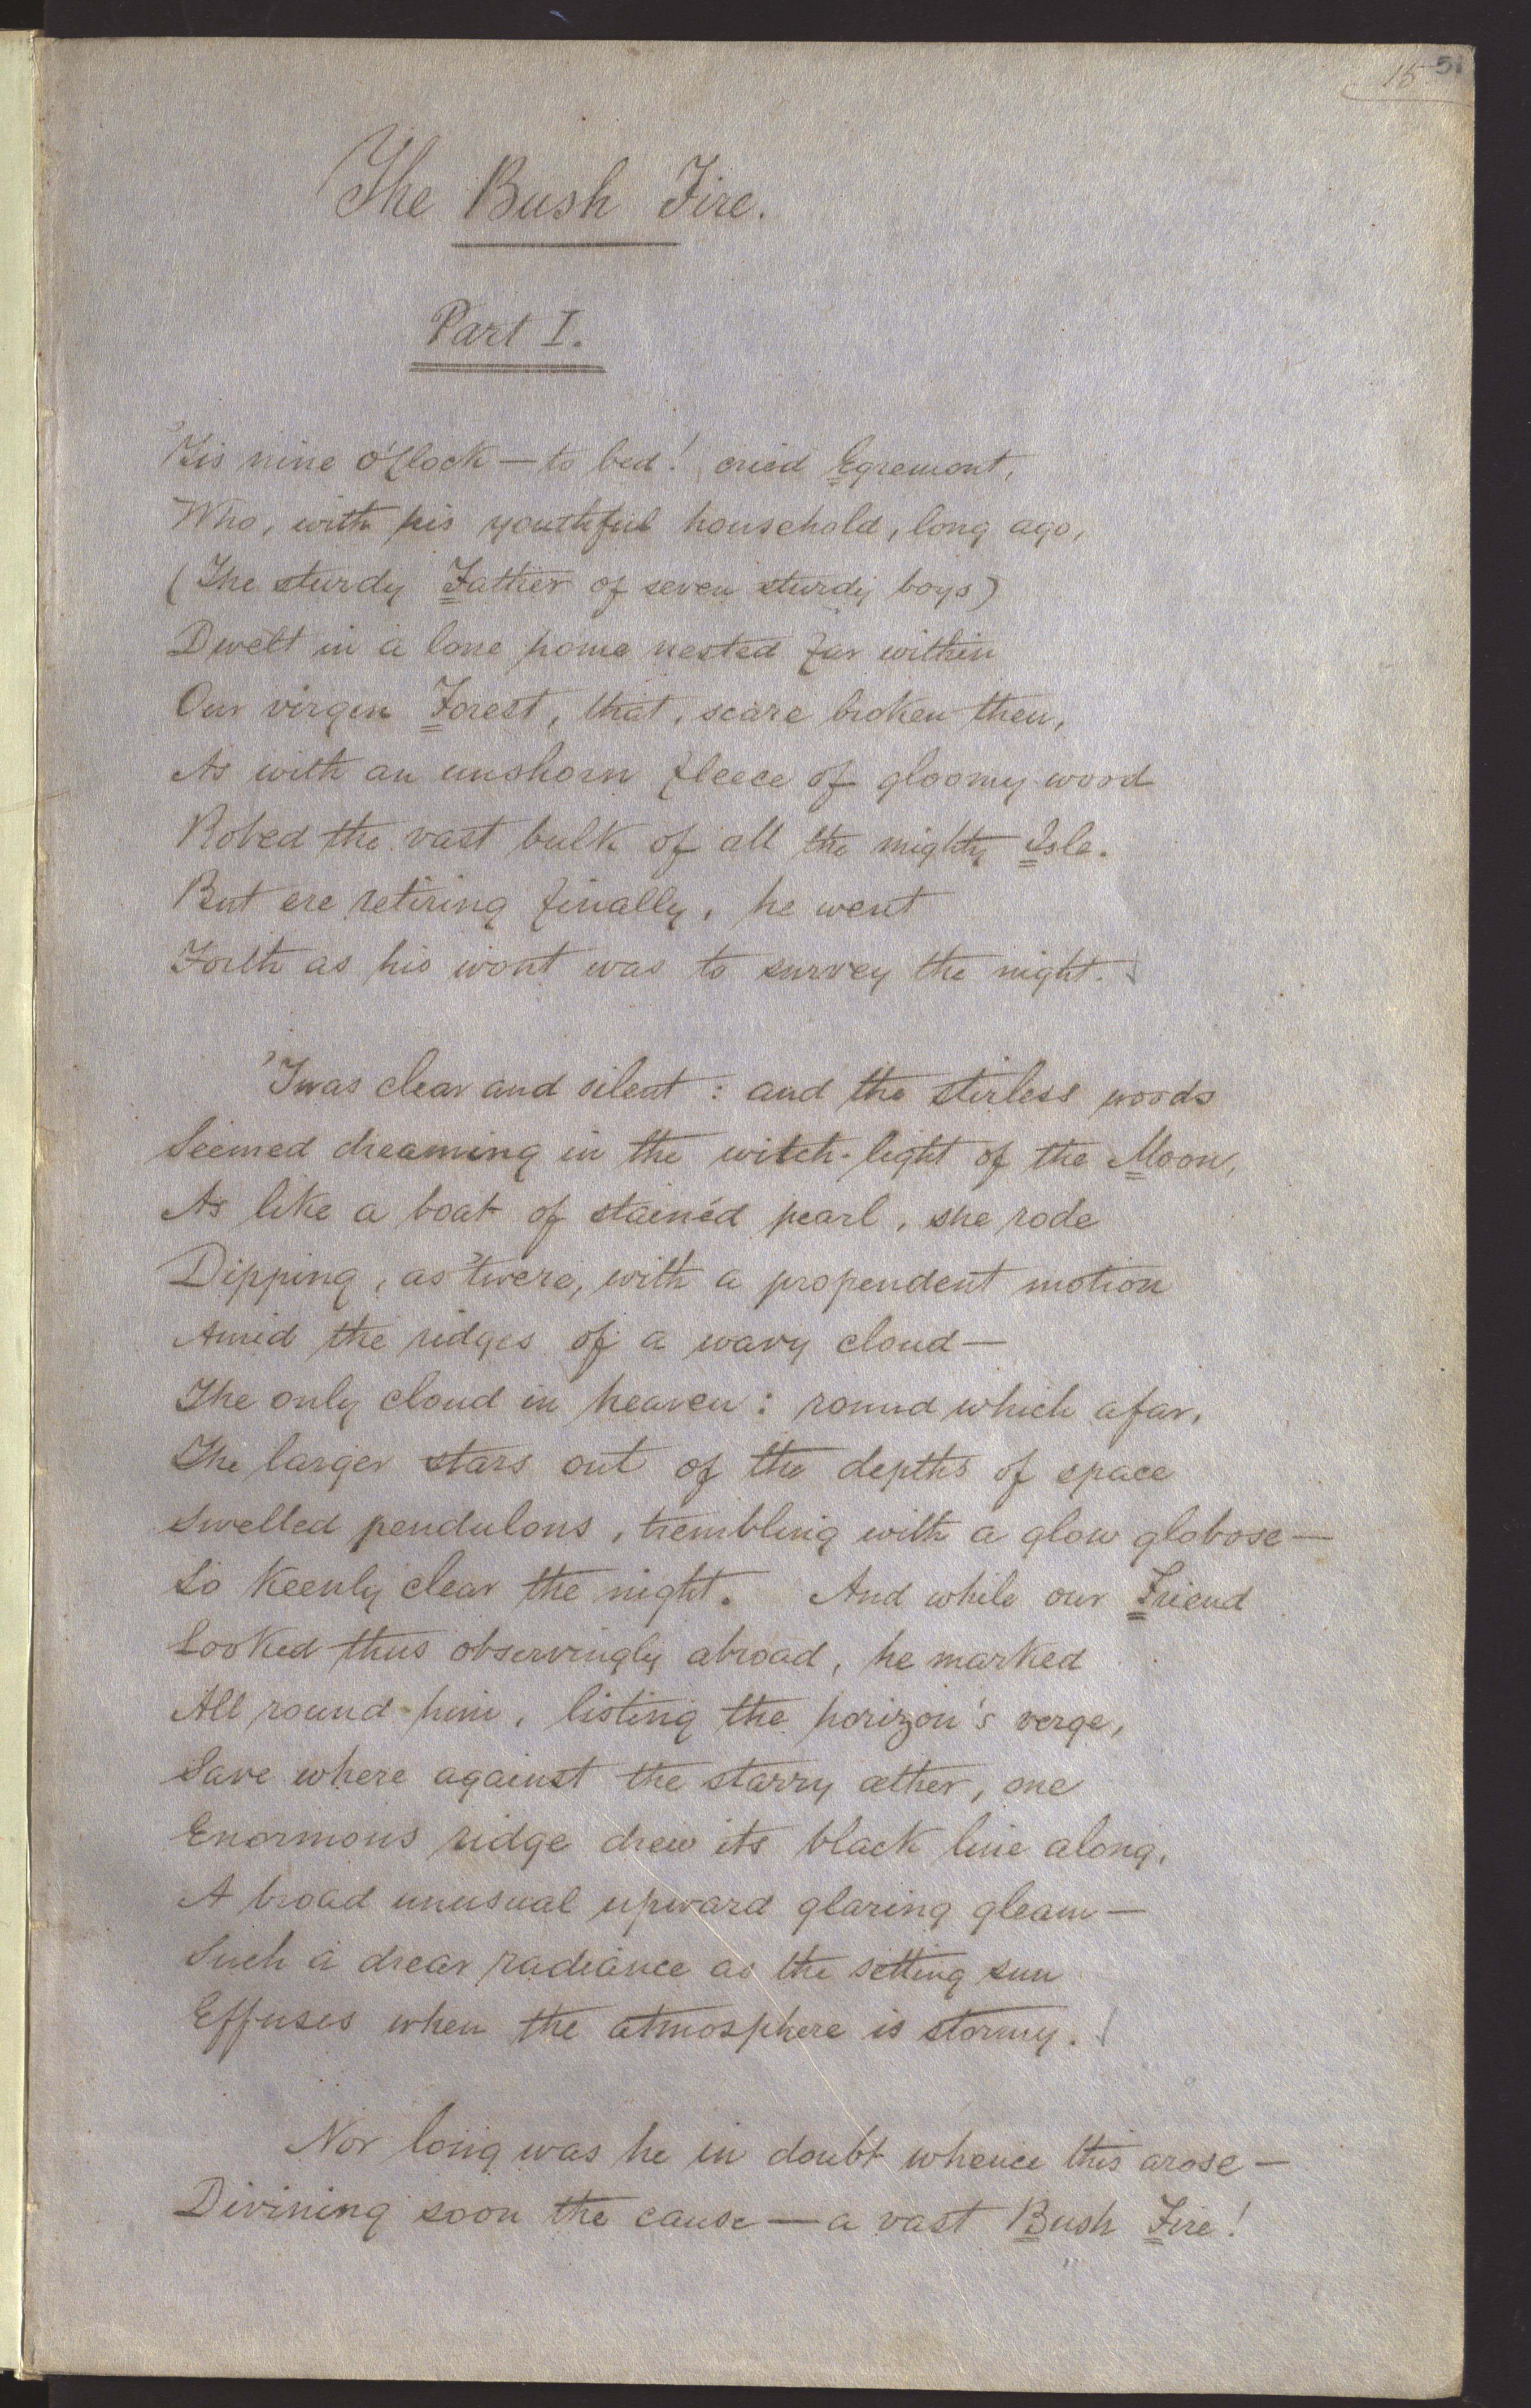 15
The Bush Fire.
Part I.
'Tis nine o'Clock — to bed! cried Egremont,
Who, with his youthful household, long ago,
(The sturdy Father of seven sturdy boys)
Dwelt in a lone home nested far within
Our virgin Forest, that, scarce broken then,
As with an unshorn fleece of gloomy wood
Robed the vast bulk of all the mighty Isle.
But ere retiring finally, he went
Forth as his wont was to survey the night.
'Twas clear and silent : and the stirless woods
Seemed dreaming in the witch-light of the Moon,
As like a boat of stainéd pearl, she rode
Dipping, as 'twere, with a propendent motion
Amid the ridges of a wavy cloud —
The only cloud in heaven : round which afar,
The larger stars out of the depths of space
Swelled pendulous, trembling with a glow globose —
So keenly clear the night. And while our Friend
Looked thus observingly abroad, he marked
All round him, listing the horizon's verge,
Save where against the starry æther, one
Enormous ridge drew its black line along,
A broad unusual upward glaring gleam —
Such a drear radiance as the setting sun
Effuses when the atmosphere is stormy.
Nor long was he in doubt whence this arose —
Divining soon the cause — a vast Bush Fire!